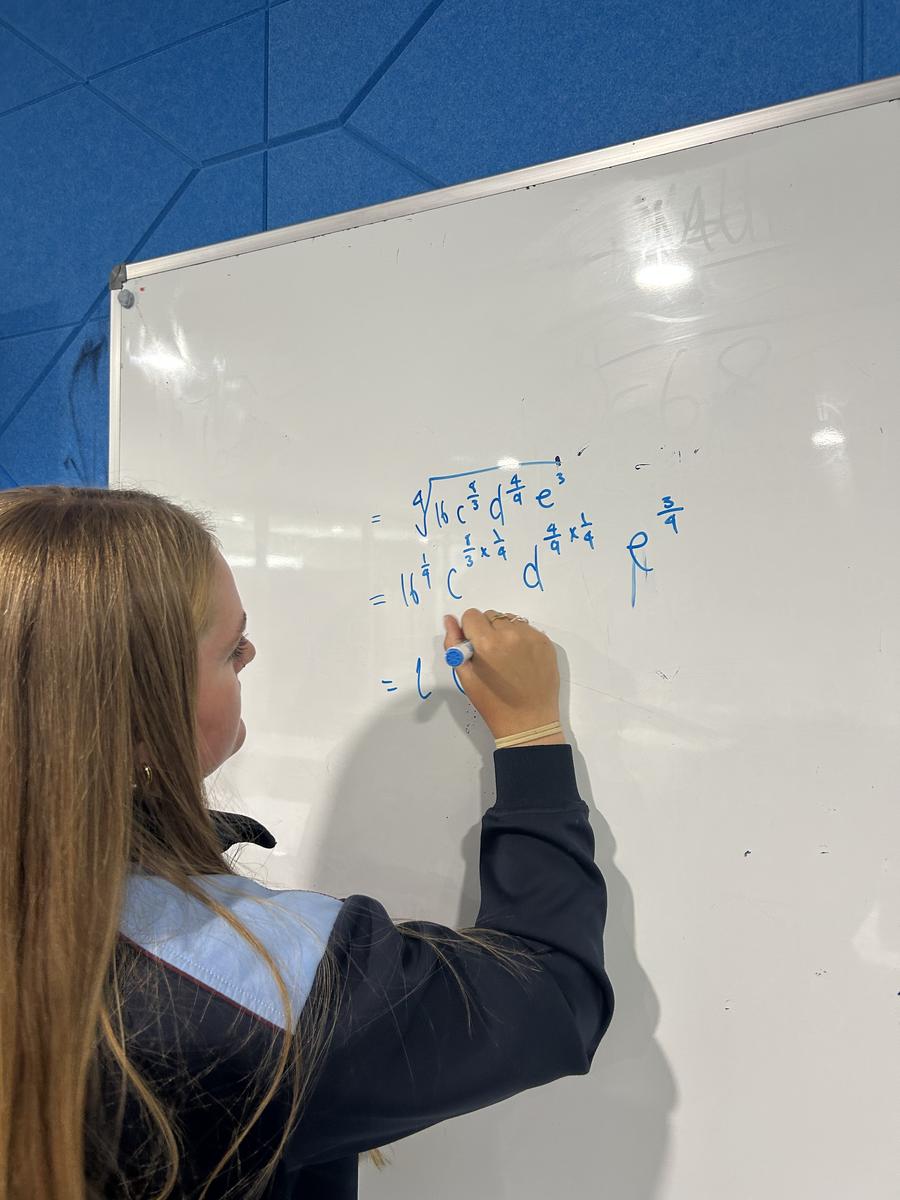 = ∜(16 c^(8/3) d^(4/9) e^3)
= 16^(1/4) c^(8/3 × 1/4) d^(4/9 × 1/4) e^(3/4)
= 2